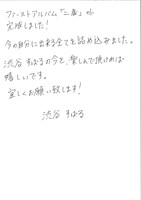 ファーストアルバム「二歳」が
完成しました!
今の自分に出来る全てを詰め込みました。
渋谷すばるの今を、楽しんで頂ければ
嬉しいです。
宜しくお願い致します!
渋谷 すばる